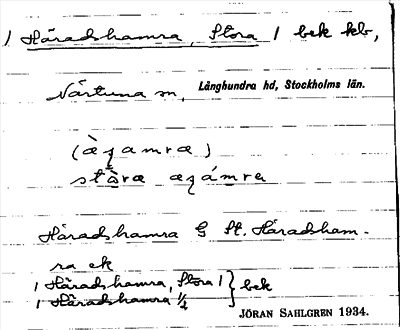 / Häradshamra, Stora / bek kb,
Närtuna sn, Långhundra hd, Stockholms län.
(æʒamræ)
stàra æʒámra
Häradshamra G St. Häradsham-
ra ek
/ Häradshamra, Stora / } bek
/ Häradshamra 1/2
JÖRAN SAHLGREN 1934.